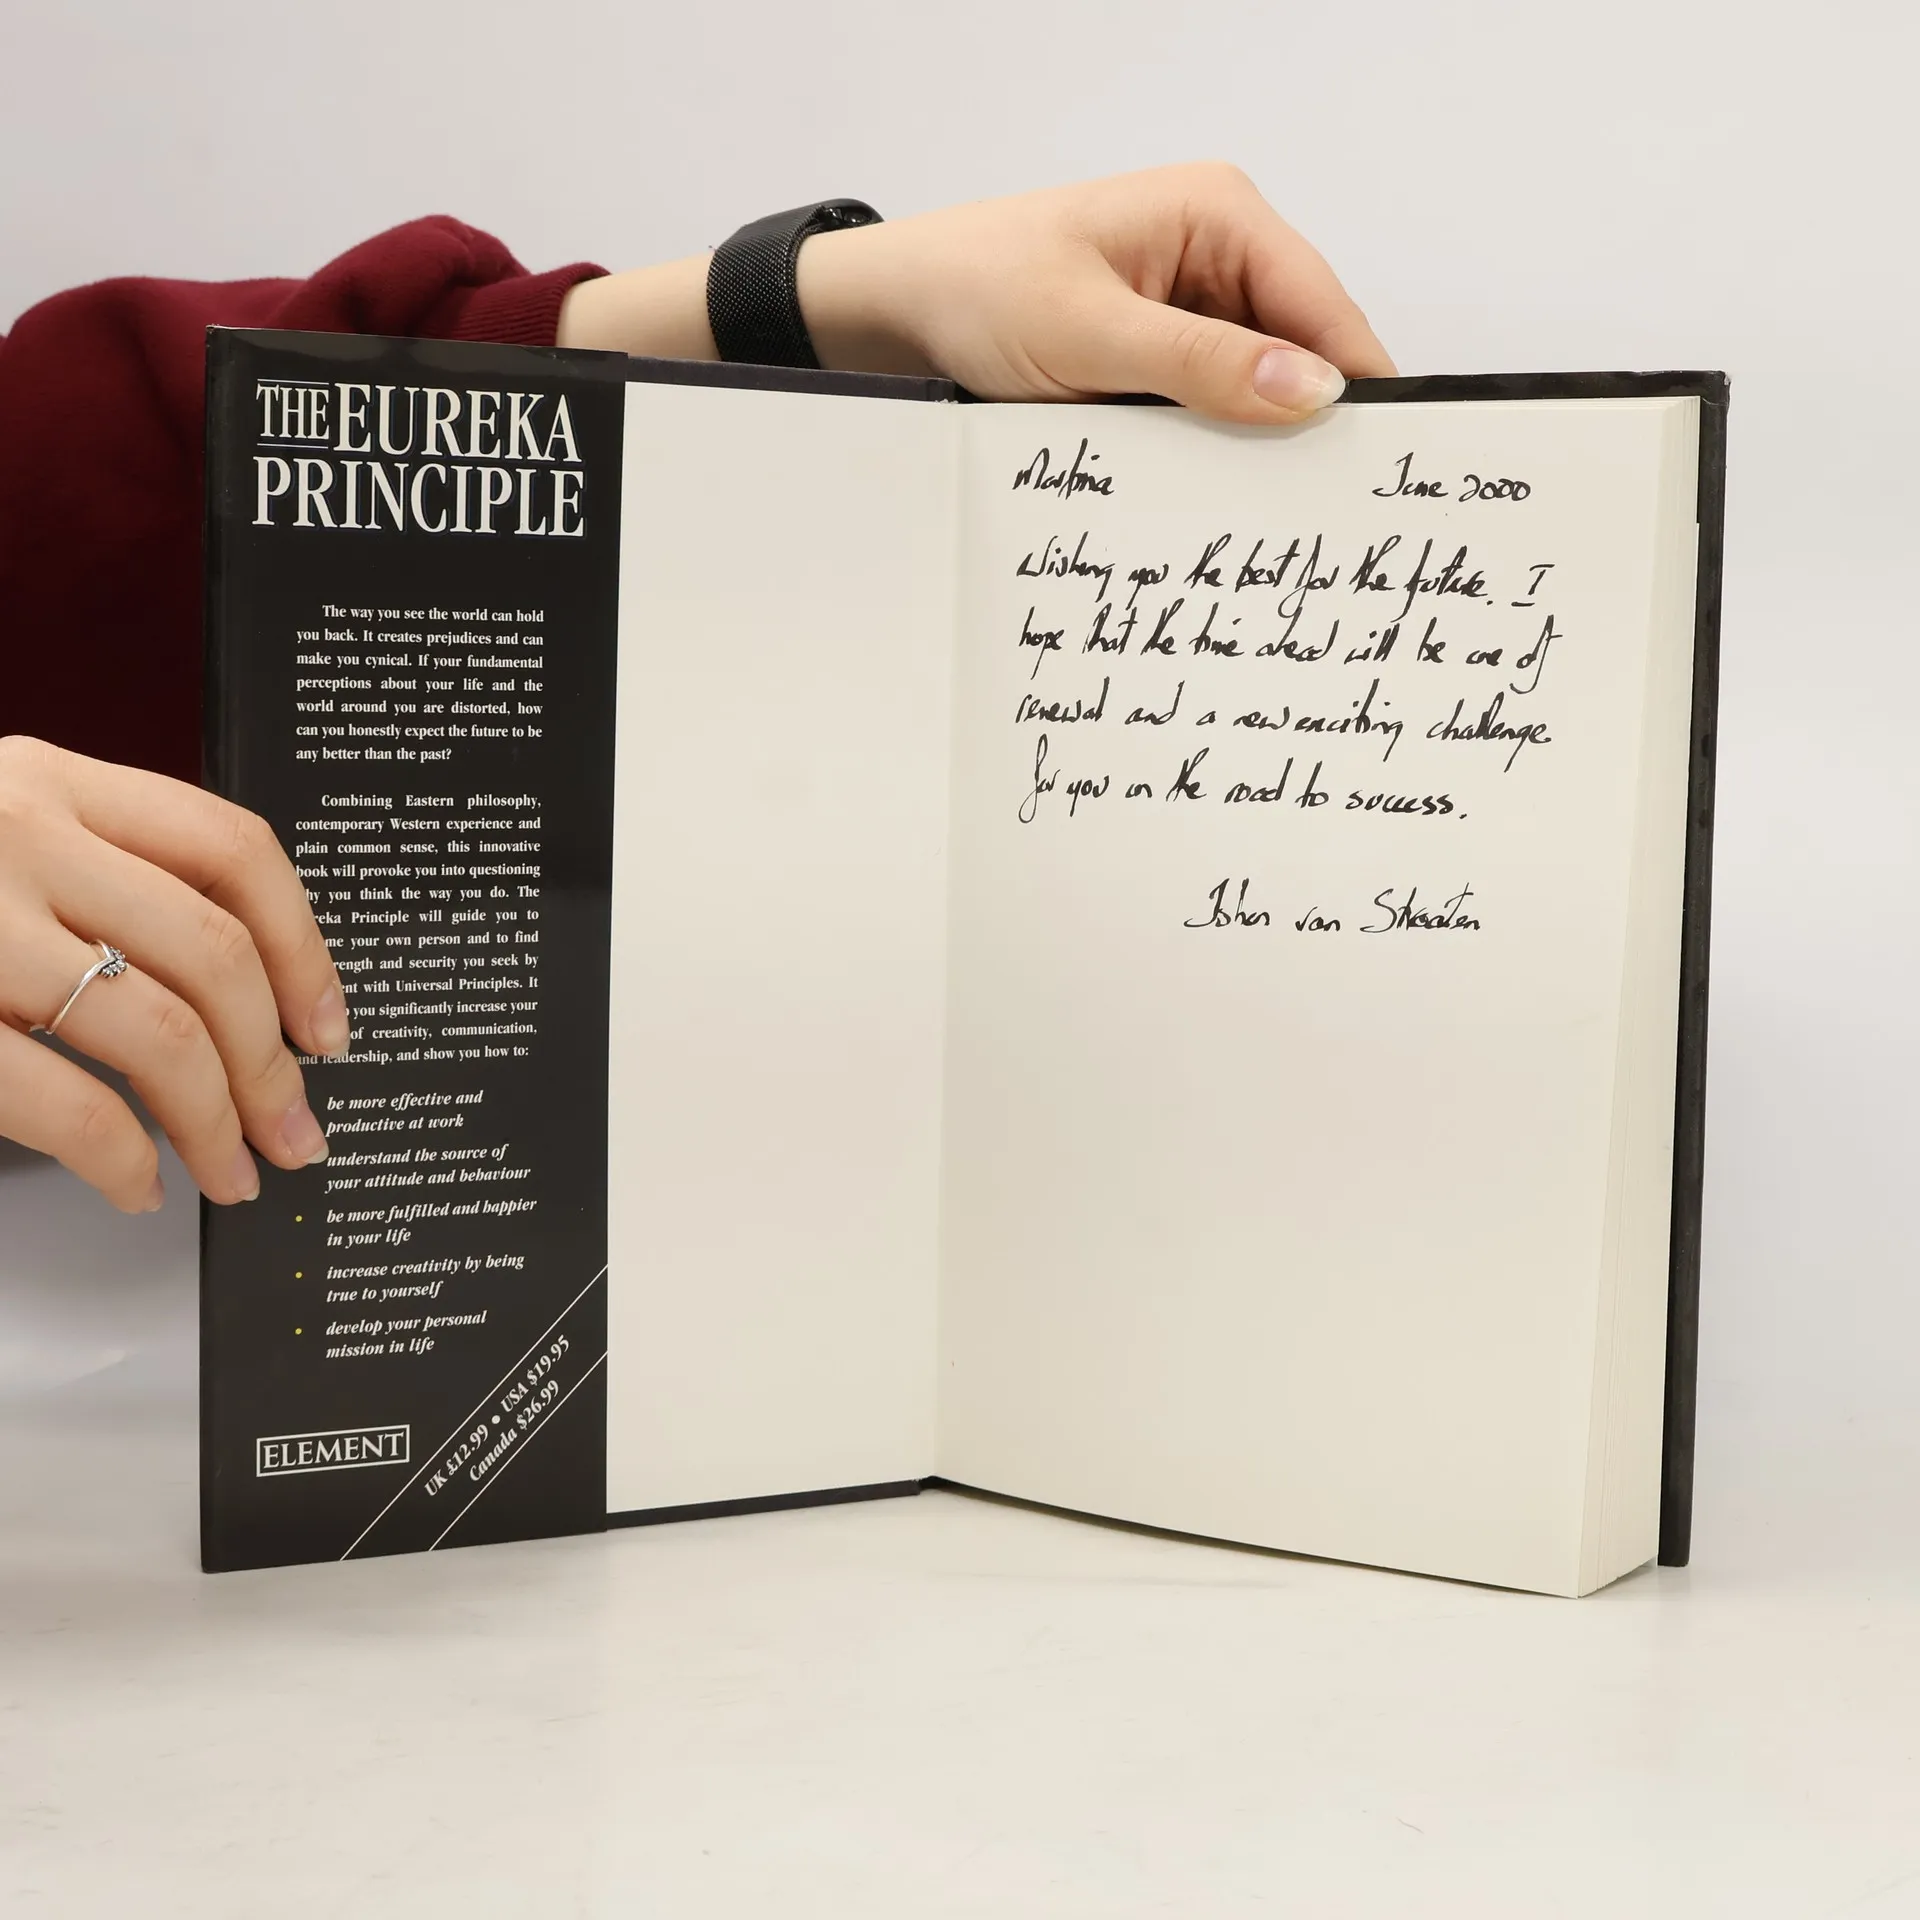 THE EUREKA
PRINCIPLE
The way you see the world can hold
you back. It creates prejudices and can
make you cynical. If your fundamental
perceptions about your life and the
world around you are distorted, how
can you honestly expect the future to be
any better than the past?
Combining Eastern philosophy,
contemporary Western experience and
plain common sense, this innovative
book will provoke you into questioning
you think the way you do. The
Principle will guide you to
your own person and to find
and security you seek by
with Universal Principles. It
you significantly increase your
of creativity, communication,
and leadership, and show you how to:
be more effective and
productive at work
understand the source of
your attitude and behaviour
• be more fulfilled and happier
in your life
• increase creativity by being
true to yourself
• develop your personal
mission in life
ELEMENT
UK £12.99 • USA $19.95
Canada $26.99
Martina June 2000
Wishing you the best for the future. I
hope that the time ahead will be one of
renewal and a new exciting challenge
for you on the road to success.
van Straaten